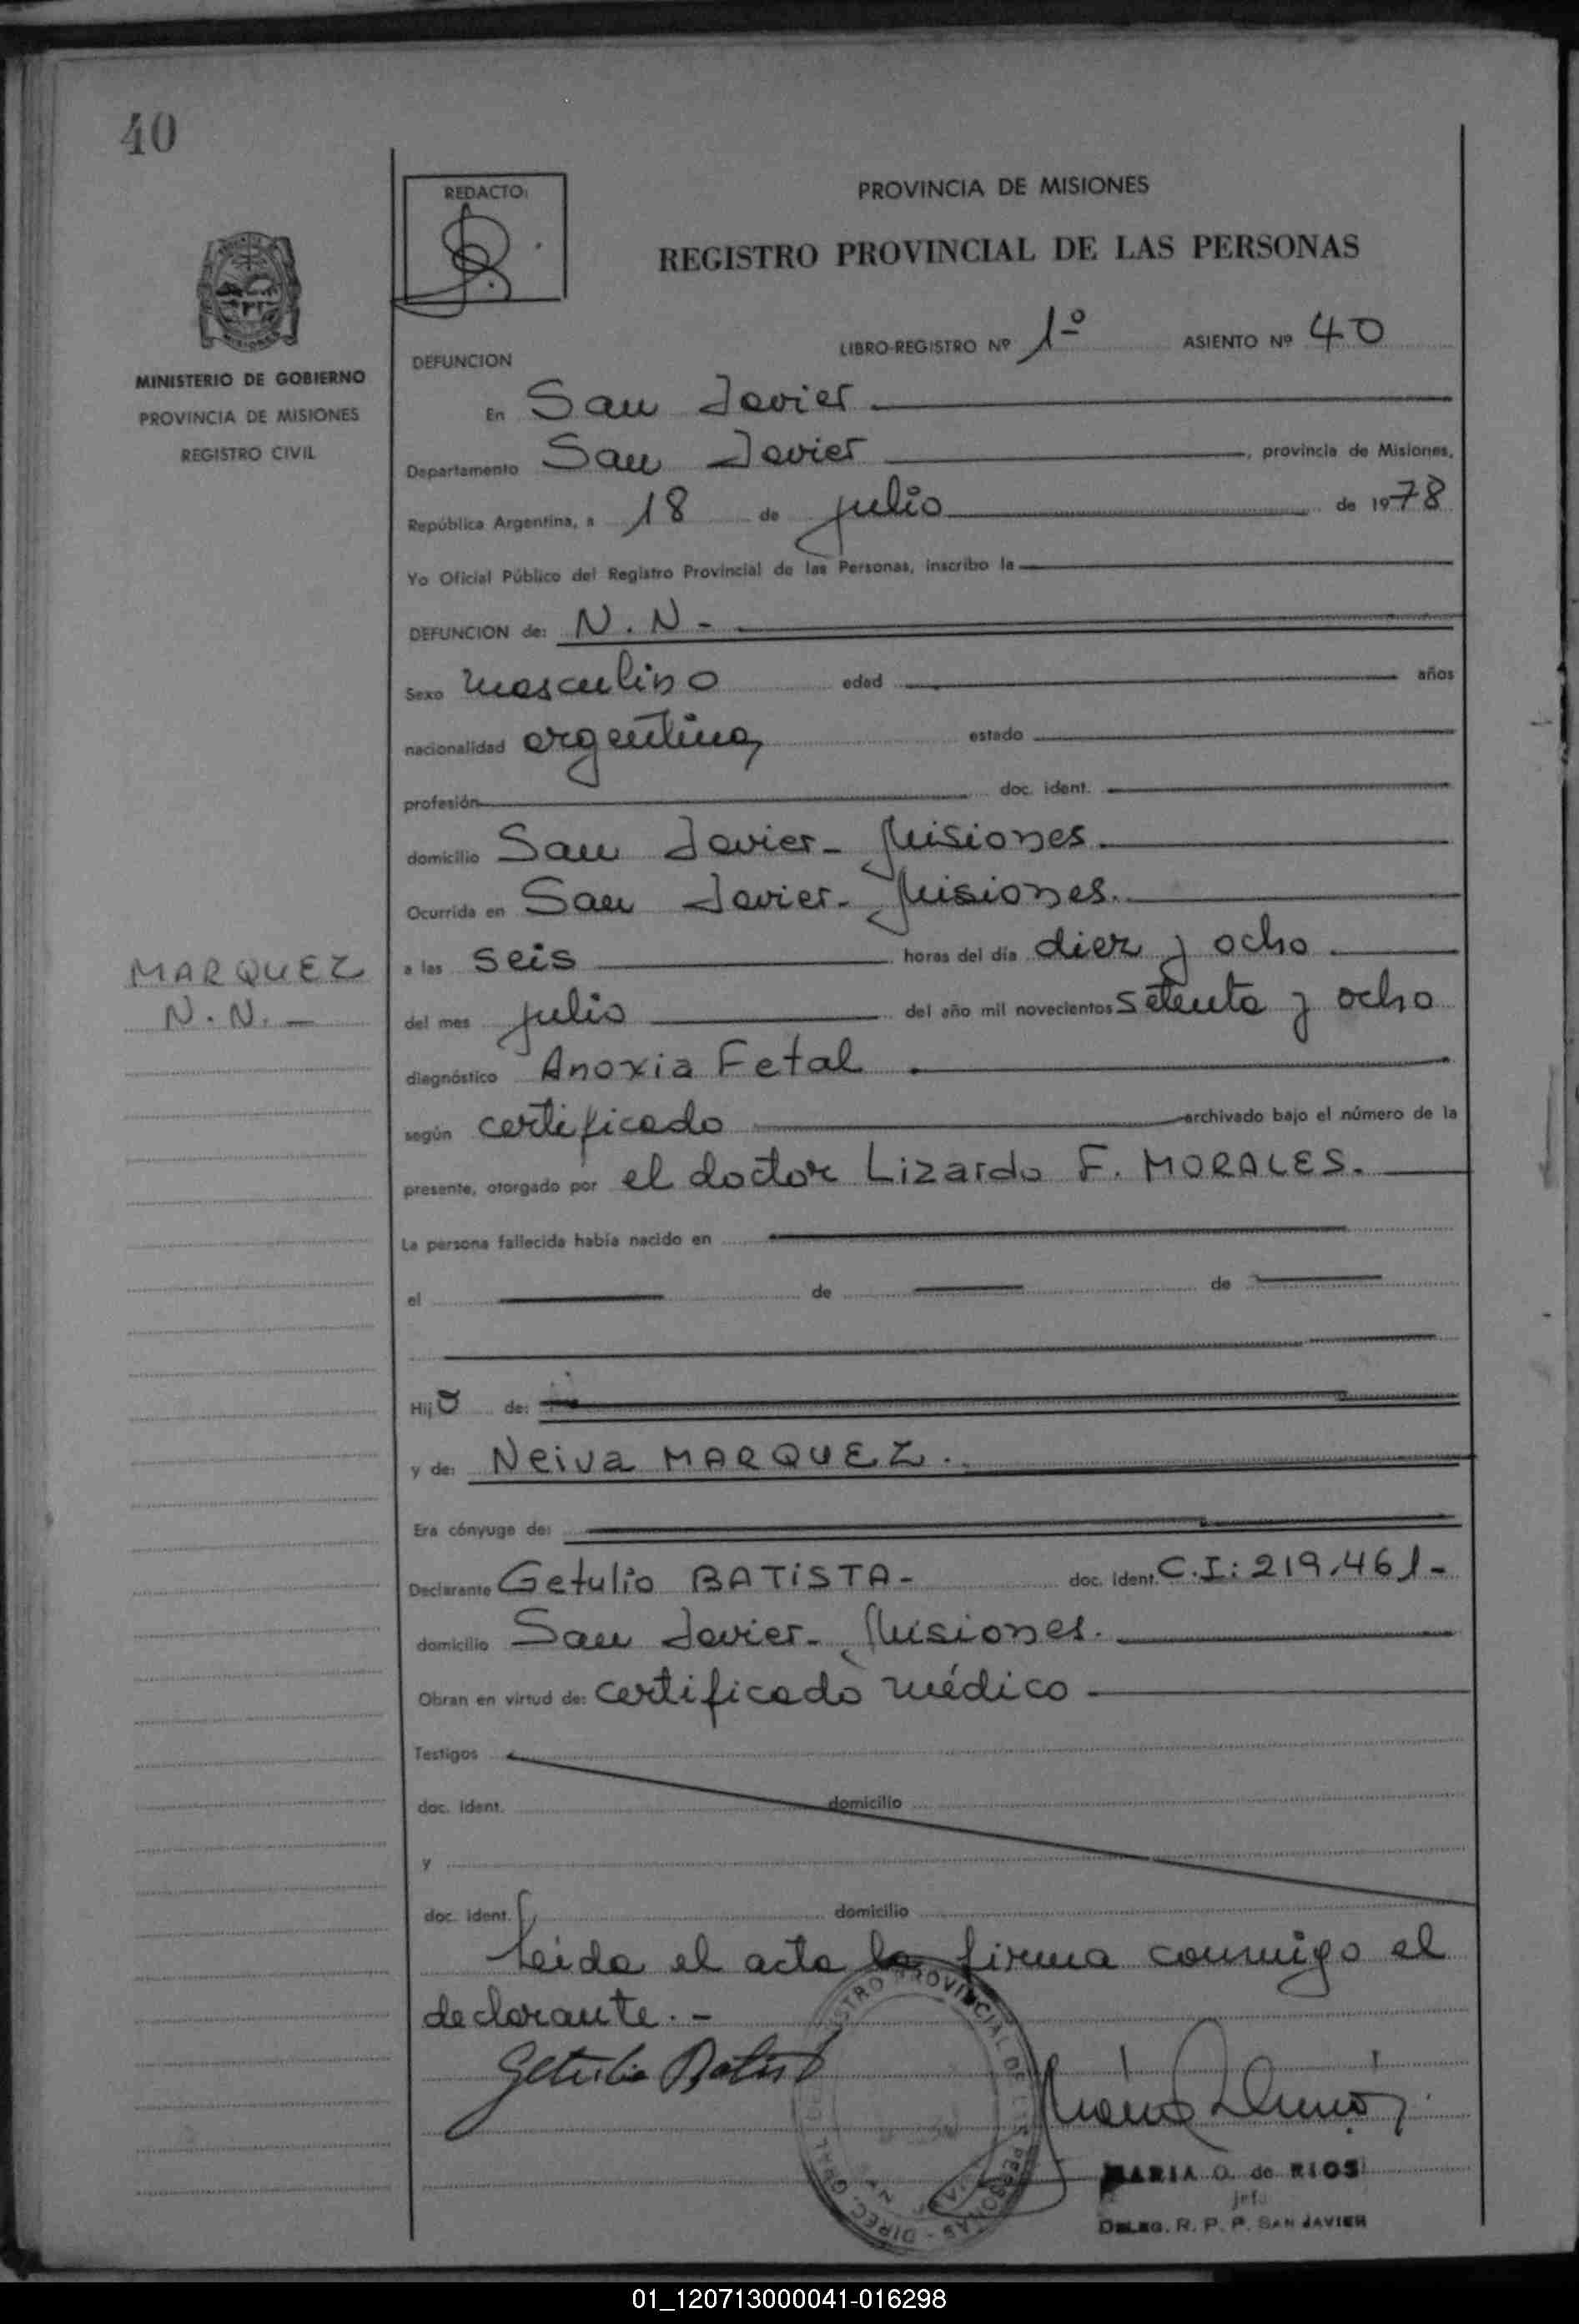 40
REDACTO:
PROVINCIA DE MISIONES
REGISTRO PROVINCIAL DE LAS PERSONAS
LIBRO-REGISTRO Nº 1º ASIENTO Nº 40
MINISTERIO DE GOBIERNO
PROVINCIA DE MISIONES
REGISTRO CIVIL
DEFUNCION
En San Javier
Departamento San Javier, provincia de Misiones,
República Argentina, a 18 de julio de 1978
Yo Oficial Público del Registro Provincial de las Personas, inscribo la
DEFUNCION de: N.N-
Sexo masculino edad años
nacionalidad argentina estado
profesión doc. ident.
domicilio San Javier- Misiones.
Ocurrida en San Javier- Misiones.
a las seis horas del día diez y ocho
MARQUEZ
N.N.-
del mes julio del año mil novecientos setenta y ocho
diagnóstico Anoxia Fetal.
según certificado archivado bajo el número de la
presente, otorgado por el doctor Lizardo F. MORALES.
La persona fallecida había nacido en
el de de
Hijo de:
y de: Neiva MARQUEZ.
Era cónyuge de:
Declarante Getulio BATISTA- doc. ident. C.I: 219.461-
domicilio San Javier- Misiones.
Obran en virtud de: certificado médico
Testigos
doc. ident. domicilio
y
doc. ident. domicilio
Leida el acta la firma conmigo el
declarante.-
Getulio Batista
MARIA O. de RIOS
jefe
DELEG. R. P. P. SAN JAVIER
01_120713000041-016298